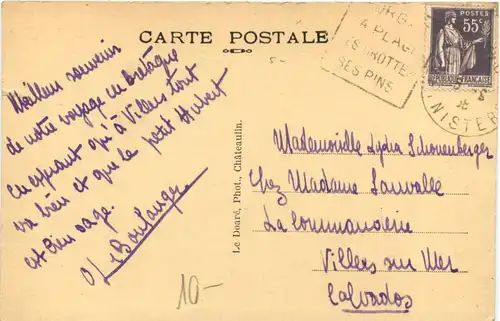 CARTE POSTALE
MORGAT
SA PLAGE
SES GROTTES
SES PINS
POSTES
55c
REPUBLIQUE FRANCAISE
FINISTERE
Meilleur souvenir
de notre voyage en Bretagne
En espérant qu'à Villers tout
va bien et que le petit Hubert
est bien sage.
Boulanger
Le Doaré, Phot., Châteaulin.
Mademoiselle Lydia Schonenberger
Chez Madame Lauvalle
La Commanderie
Villers sur Mer
Calvados
10-